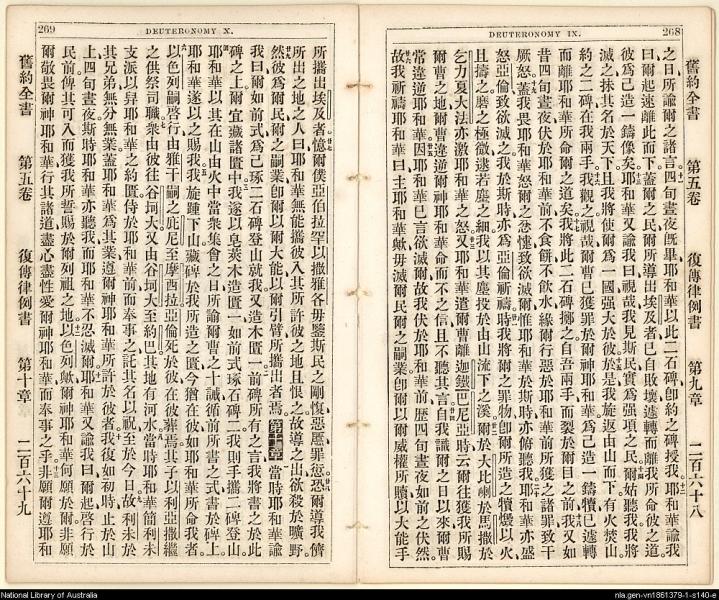 268
DEUTERONOMY IX.
舊約全書 第五卷 復傳律例書 第九章 二百六十八
之日所諭爾之諸言四旬晝夜既畢耶和華以此二石碑卽約之碑授我耶和華諭我
曰爾起速離此而下蓋爾之民爾所導出埃及者已自敗壞遽轉而離我所命彼之道
彼爲己造一鑄像矣耶和華又諭我曰視哉我見斯民實爲强項之民爾姑聽我我將
滅之抹其名於天下且我將使爾爲一國强大於彼於是我旋返由山而下有火焚山
約之二碑在我兩手我觀之視哉爾曹已獲罪於爾神耶和華爲己造一鑄犢已遽轉
而離耶和華所命爾之道矣我將此二石碑擲之自吾兩手而裂於爾目之前我又如
昔四旬晝夜伏於耶和華前不食餅不飲水緣爾行惡於耶和華前所獲之諸罪致干
厥怒蓋我畏耶和華怒爾之忿致欲滅爾惟耶和華於斯時亦俯聽我耶和華亦盛
怒亞倫致欲滅之我於斯時亦爲亞倫祈禱時我將爾之罪物卽爾所造之犢燬以火
且擣之磨之極微逮若塵之細我以其塵投於由山流下之溪爾於大比喇於馬撒於
乞力夏大法亦激耶和華之怒又耶和華遣爾曹離迦鐵巴尼亞時云爾往獲我所賜
爾曹之地爾曹違逆爾神耶和華命而不之信且不聽其言自我識爾之日以來爾曹
常違逆耶和華因耶和華已言欲滅爾故我伏於耶和華前歷四旬晝夜如前之伏然
故我祈禱耶和華曰主耶和華歟毋滅爾民爾之嗣業卽爾以爾威權所贖以大能手
269
DEUTERONOMY X.
所攜出埃及者憶爾僕亞伯拉罕以撒雅各毋鑒斯民之剛愎惡慝罪愆恐爾導我儕
所出之地之人曰耶和華無能攜彼入其所許彼之地且恨之故導之出欲殺於曠野
然彼爲爾民爾之嗣業卽爾以爾大能以爾引臂所攜出者焉 第十章 當時耶和華諭
我曰爾如前式爲己琢二石碑登山就我又造木匱一前碑所有之言我將書之於此
碑之上爾宜藏諸匱中我遂以皂莢木造匱一如前式琢石碑二我則手攜二碑登山
耶和華以其在山由火中當衆集會之日所諭爾曹之十誡循前所書之式書於碑上
耶和華遂以之賜我我旋踵下山藏碑於我所造之匱今猶在彼如耶和華所命我者
以色列嗣啓行由雅干嗣之庇尼至摩西拉亞倫死於彼在彼葬焉其子以利亞撒繼
之供祭司職衆由彼往谷坷大又由谷坷大至約巴其地有河水當時耶和華簡利未
支派以舁耶和華之約匱侍於耶和華前而奉事之託其名以祝至於今日故利未於
其兄弟無分無業蓋耶和華爲其業遵爾神耶和華所許於彼者我復如初時止於山
上四旬晝夜斯時耶和華亦聽我而耶和華不忍滅爾耶和華又諭我曰爾起啓行於
民前俾其可入而獲我所誓賜於爾列祖之地以色列歟爾神耶和華何願於爾非願
爾敬畏爾神耶和華行其諸道盡心盡性愛爾神耶和華而奉事之乎非願爾遵耶和
舊約全書 第五卷 復傳律例書 第十章 二百六十九
National Library of Australia
nla.gen-vn1861379-1-s140-e